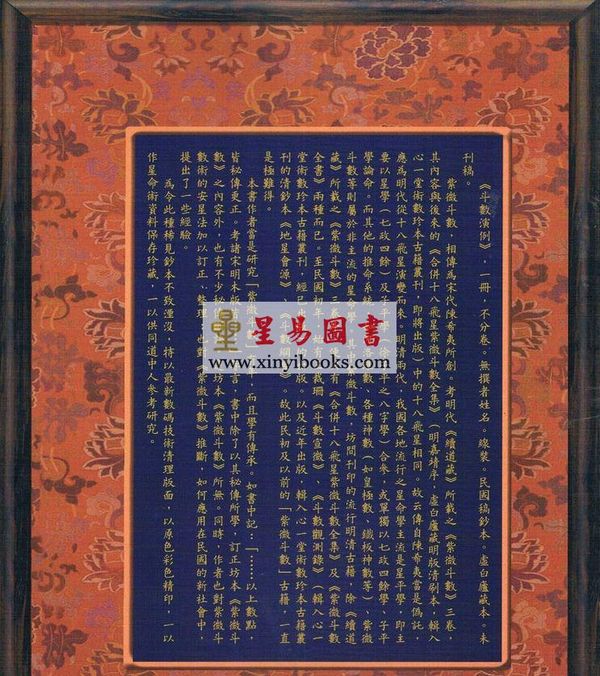 《斗數演例》，一冊，不分卷。無撰者姓名。線裝。民國稿鈔本。虛白廬藏本。未
刊稿。
紫微斗數，相傳為宋代陳希夷所創。考明代《續道藏》所載之《紫微斗數》三卷，
其內容與後來的《合併十八飛星紫微斗數全集》（明嘉靖序，虛白廬藏明版清刷本，輯入
心一堂術數珍本古籍叢刊，即將出版）中的十八飛星相同。故云傳自陳希夷當是偽託，
應為明代從十八飛星演變而來。明清兩代，我國各地流行之星命學主流是星平學，即主
要以星學（七政四餘）及子平學（徐子平之八字學）合參，或單獨以七政四餘學，子平
學論命。而其他的推命系統
各種神數（如皇極數、鐵板神數等）、紫微
斗數等則屬於非主流的星命學
斗數，坊間刊印的流行明清古籍，除《續道
藏》所載之《紫微斗數》三卷
有《合併十八飛星紫微斗數全集》及《紫微斗數
全書》兩種而已。至民國初年，始有
裁珊《斗數宣微》、《斗數觀測錄》（輯入心一
堂術數珍本古籍叢刊，經已出版）
出版。以及近年出版，輯入心一堂術數珍本古籍叢
刊的清鈔本《地星會源》、《斗數
》。故此民初及以前的「紫微斗數」古籍，一直
是極難得。
本書作者當是研究「紫微
而且學有傳承。如書中記：「……以上數點，
皆秘傳更正。考諸宋明木版
言，書中除了以其秘傳所學，訂正坊本《紫微斗
數》之內容外，也有不少秘傳
坊本《紫微斗數》所無。同時，作者也對紫微斗
數術的安星法加以訂正、整理
也對
紫微斗數》推斷，如何應用在民國的新社會中，
提出了一些經驗。
為令此種稀見鈔本不致湮沒，特以最新數碼技術清理版面，以原色彩色精印，一以
作星命術資料保存珍藏，一以供同道中人參考研究。
星易圖書
www.xinyibooks.com